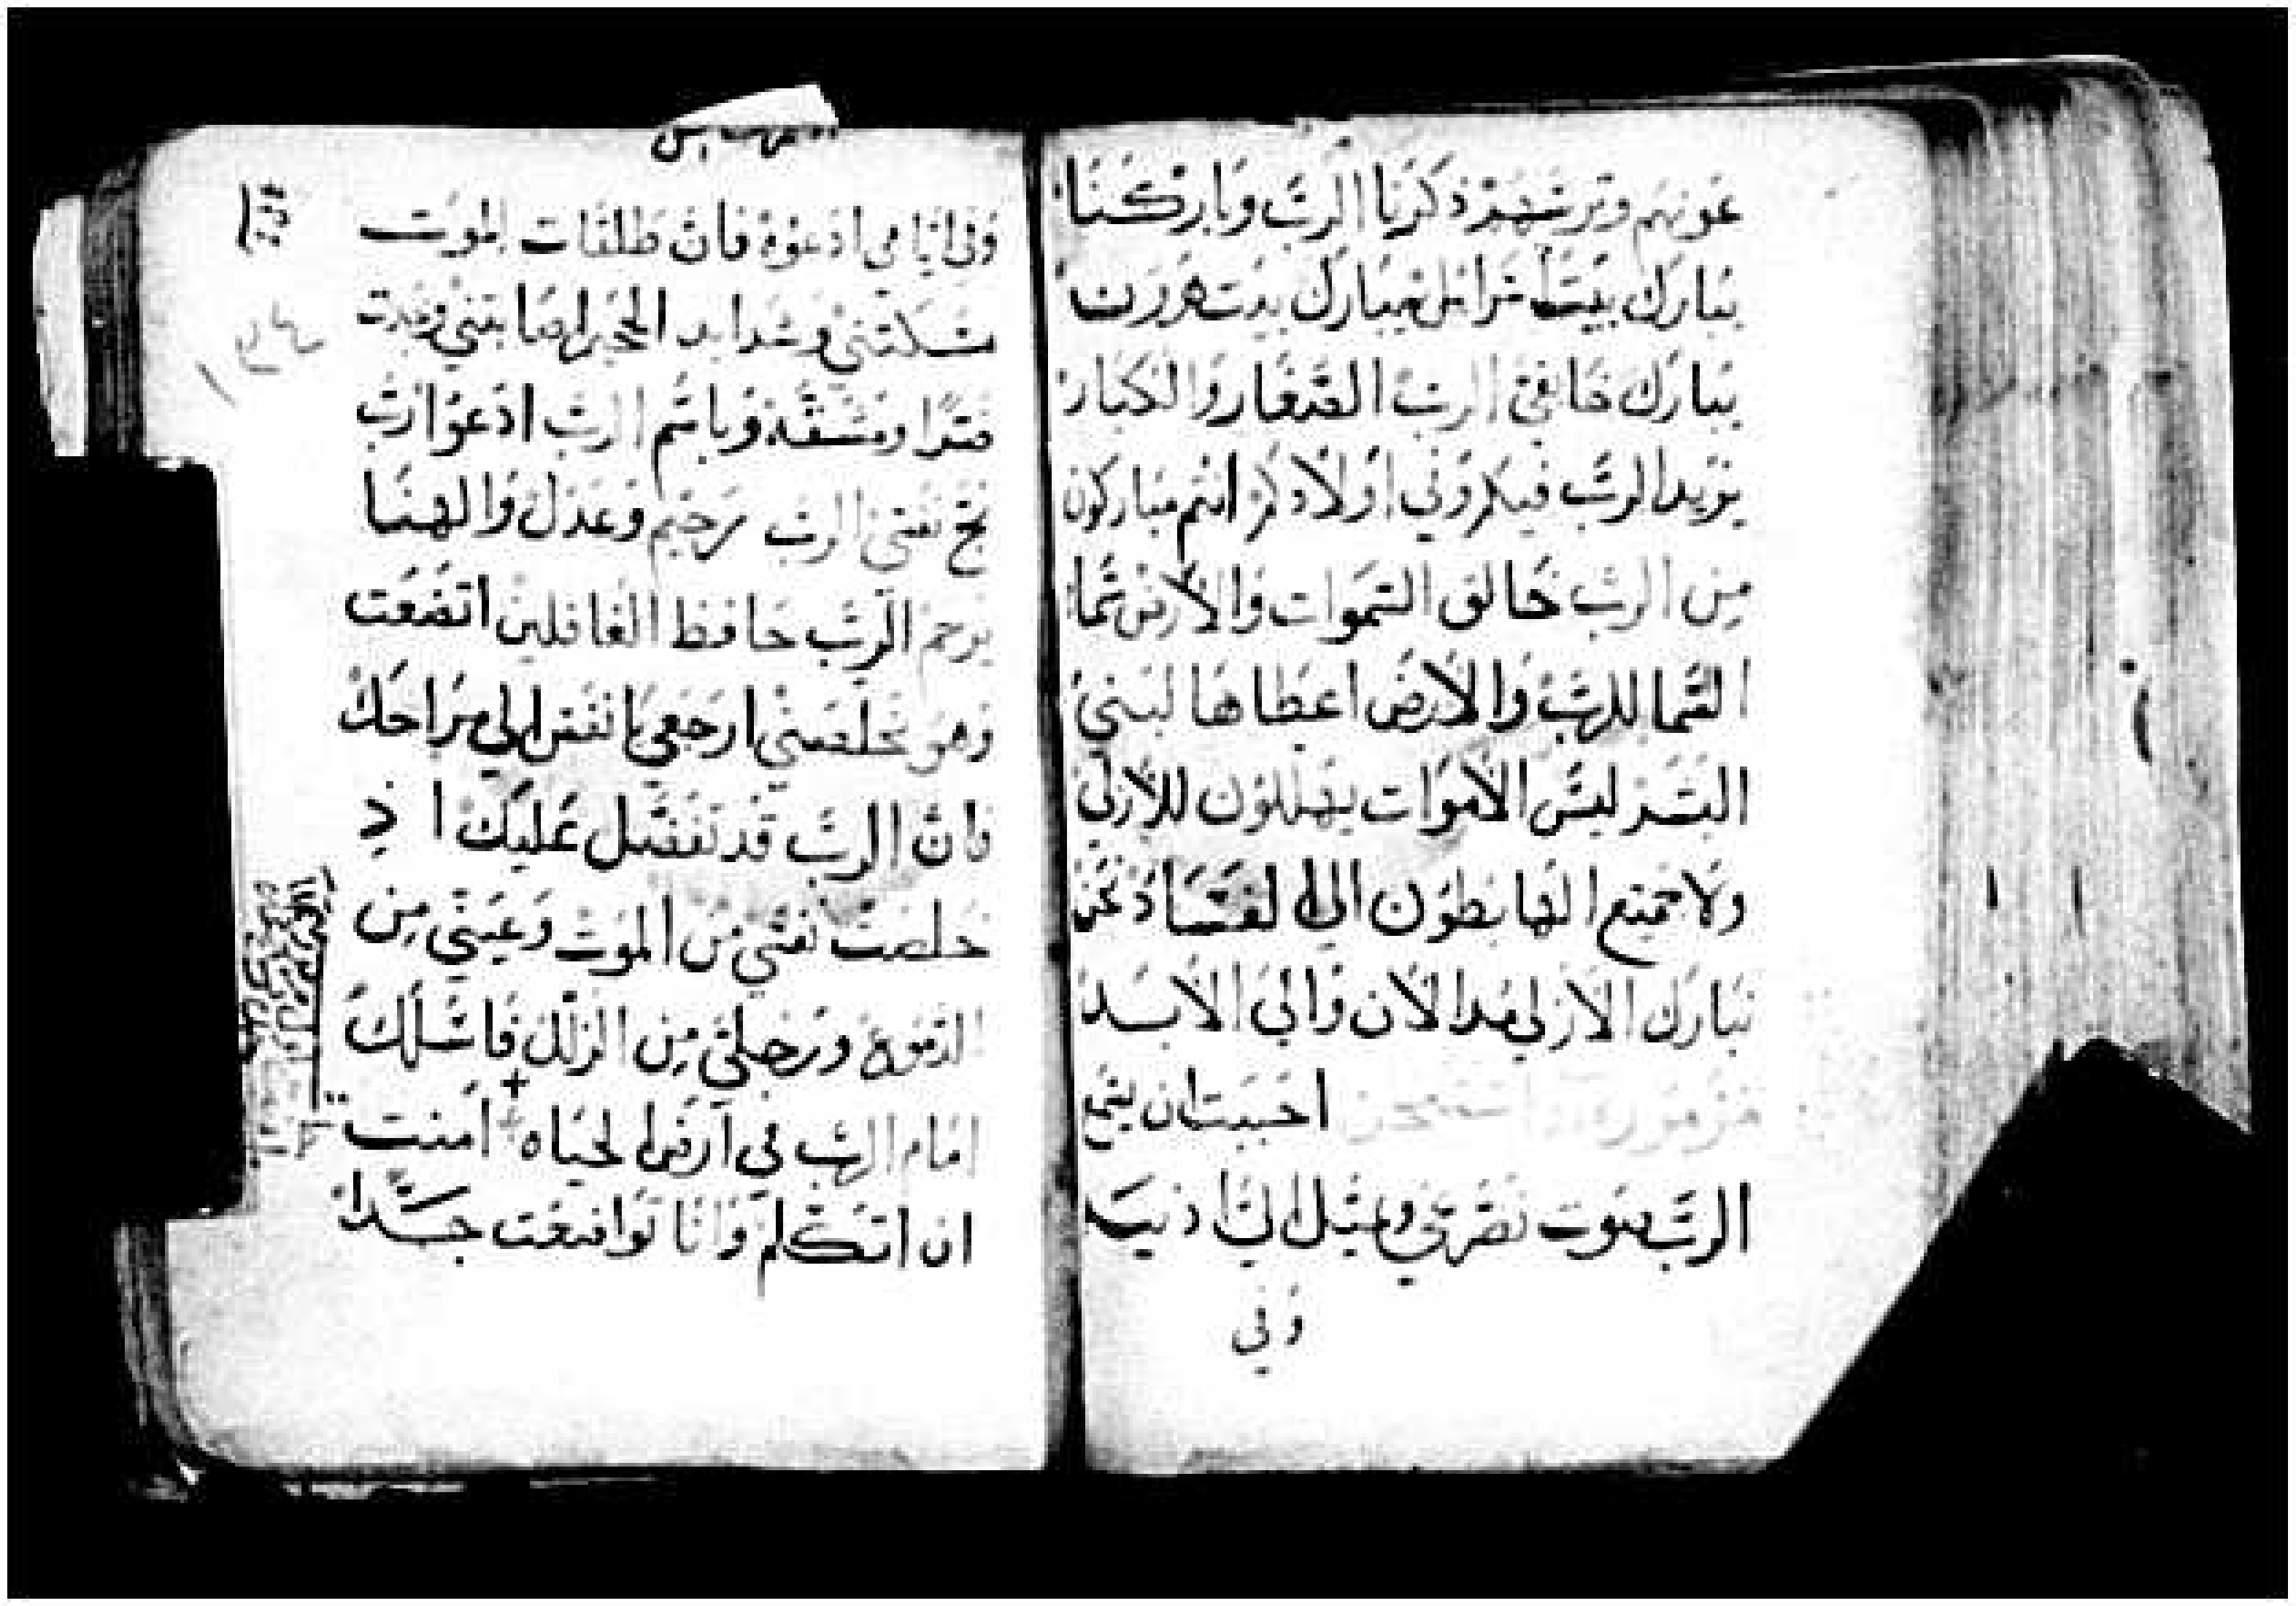 عونهم وترسهم ذكرنا الرب وباركنا
يبارك بيت اسرائيل يبارك بيت هرون
يبارك خائفي الرب الصغار والكبار
يزيد الرب فيكم وفي اولادكم انتم مباركون
من الرب خالق السموات والارض سما
السما للرب والارض اعطاها لبني
البشر ليس الاموات يهللون للازلي
ولا جميع الهابطون الي لكننا نحن
نبارك الازلي مدا الان والي الابد
مزمور احببت ان يسمع
الرب صوت تضرعي ويميل الي اذنيه
وفي
وفي ايامي ادعوه فان طلقات الموت
مسكتني وشدايد الجحيم اصابتني وجدت
ضرا ومشقة وباسم الرب ادعوا رب
نج نفسي الرب رحيم وعدل والهنا
يرحم الرب حافظ الغافلين اتضعت
وهو خلصني ارجعي يا نفس الي راحتك
فان الرب قد تفضل عليك اذ
خلصت نفسي من الموت وعيني من
الدموع ورجلي من الزلل فاسلك
امام الرب في ارض الحياه + امنت
ان اتكلم وانا تواضعت جدا